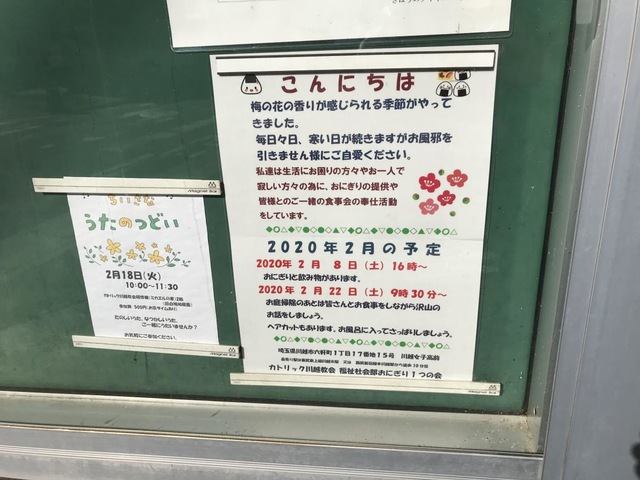 こんにちは
梅の花の香りが感じられる季節がやって
きました。
毎日々日、寒い日が続きますがお風邪を
引きません様にご自愛ください。
私達は生活にお困りの方々やお一人で
寂しい方々の為に、おにぎりの提供や
皆様とのご一緒の食事会の奉仕活動
をしています。
2020年2月の予定
2020年 2月 8日(土) 16時～
おにぎりと飲み物があります。
2020年 2月 22日(土) 9時30分～
お庭掃除のあとは皆さんとお食事をしながら沢山の
お話をしましょう。
ヘアカットもあります。お風呂に入ってさっぱりしましょう。
埼玉県川越市六軒町1丁目17番地15号 川越女子高前
カトリック川越教会 福祉社会部おにぎり1つの会
ちいさな
うたのつどい
2月18日(火)
10:00～11:30
たのしいうた、なつかしいうた、
ご一緒にうたいませんか？
お気軽にご参加ください。
Magnet Bar
Magnet Bar
Magnet Bar